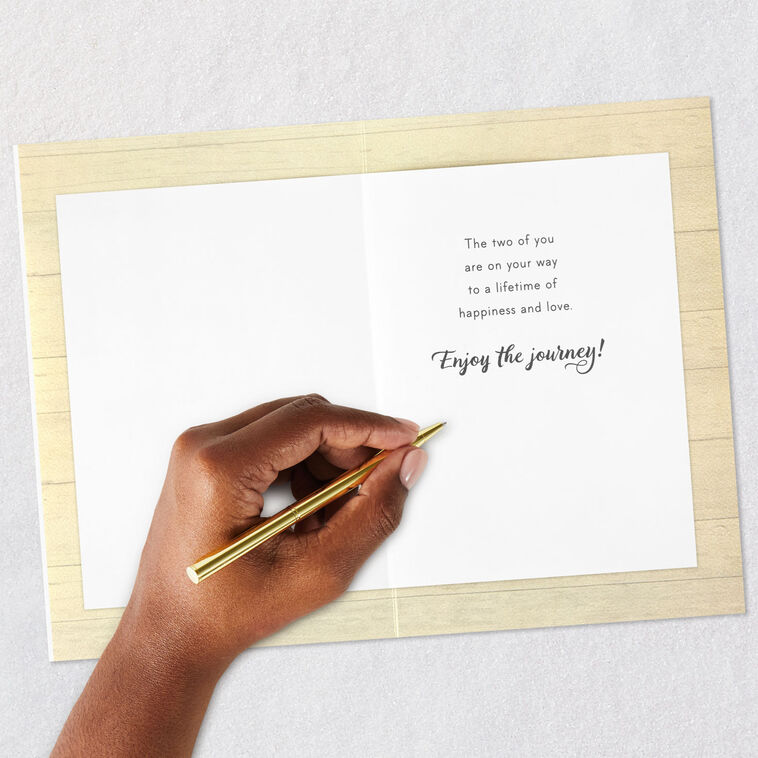 The two of you
are on your way
to a lifetime of
happiness and love.
Enjoy the journey!